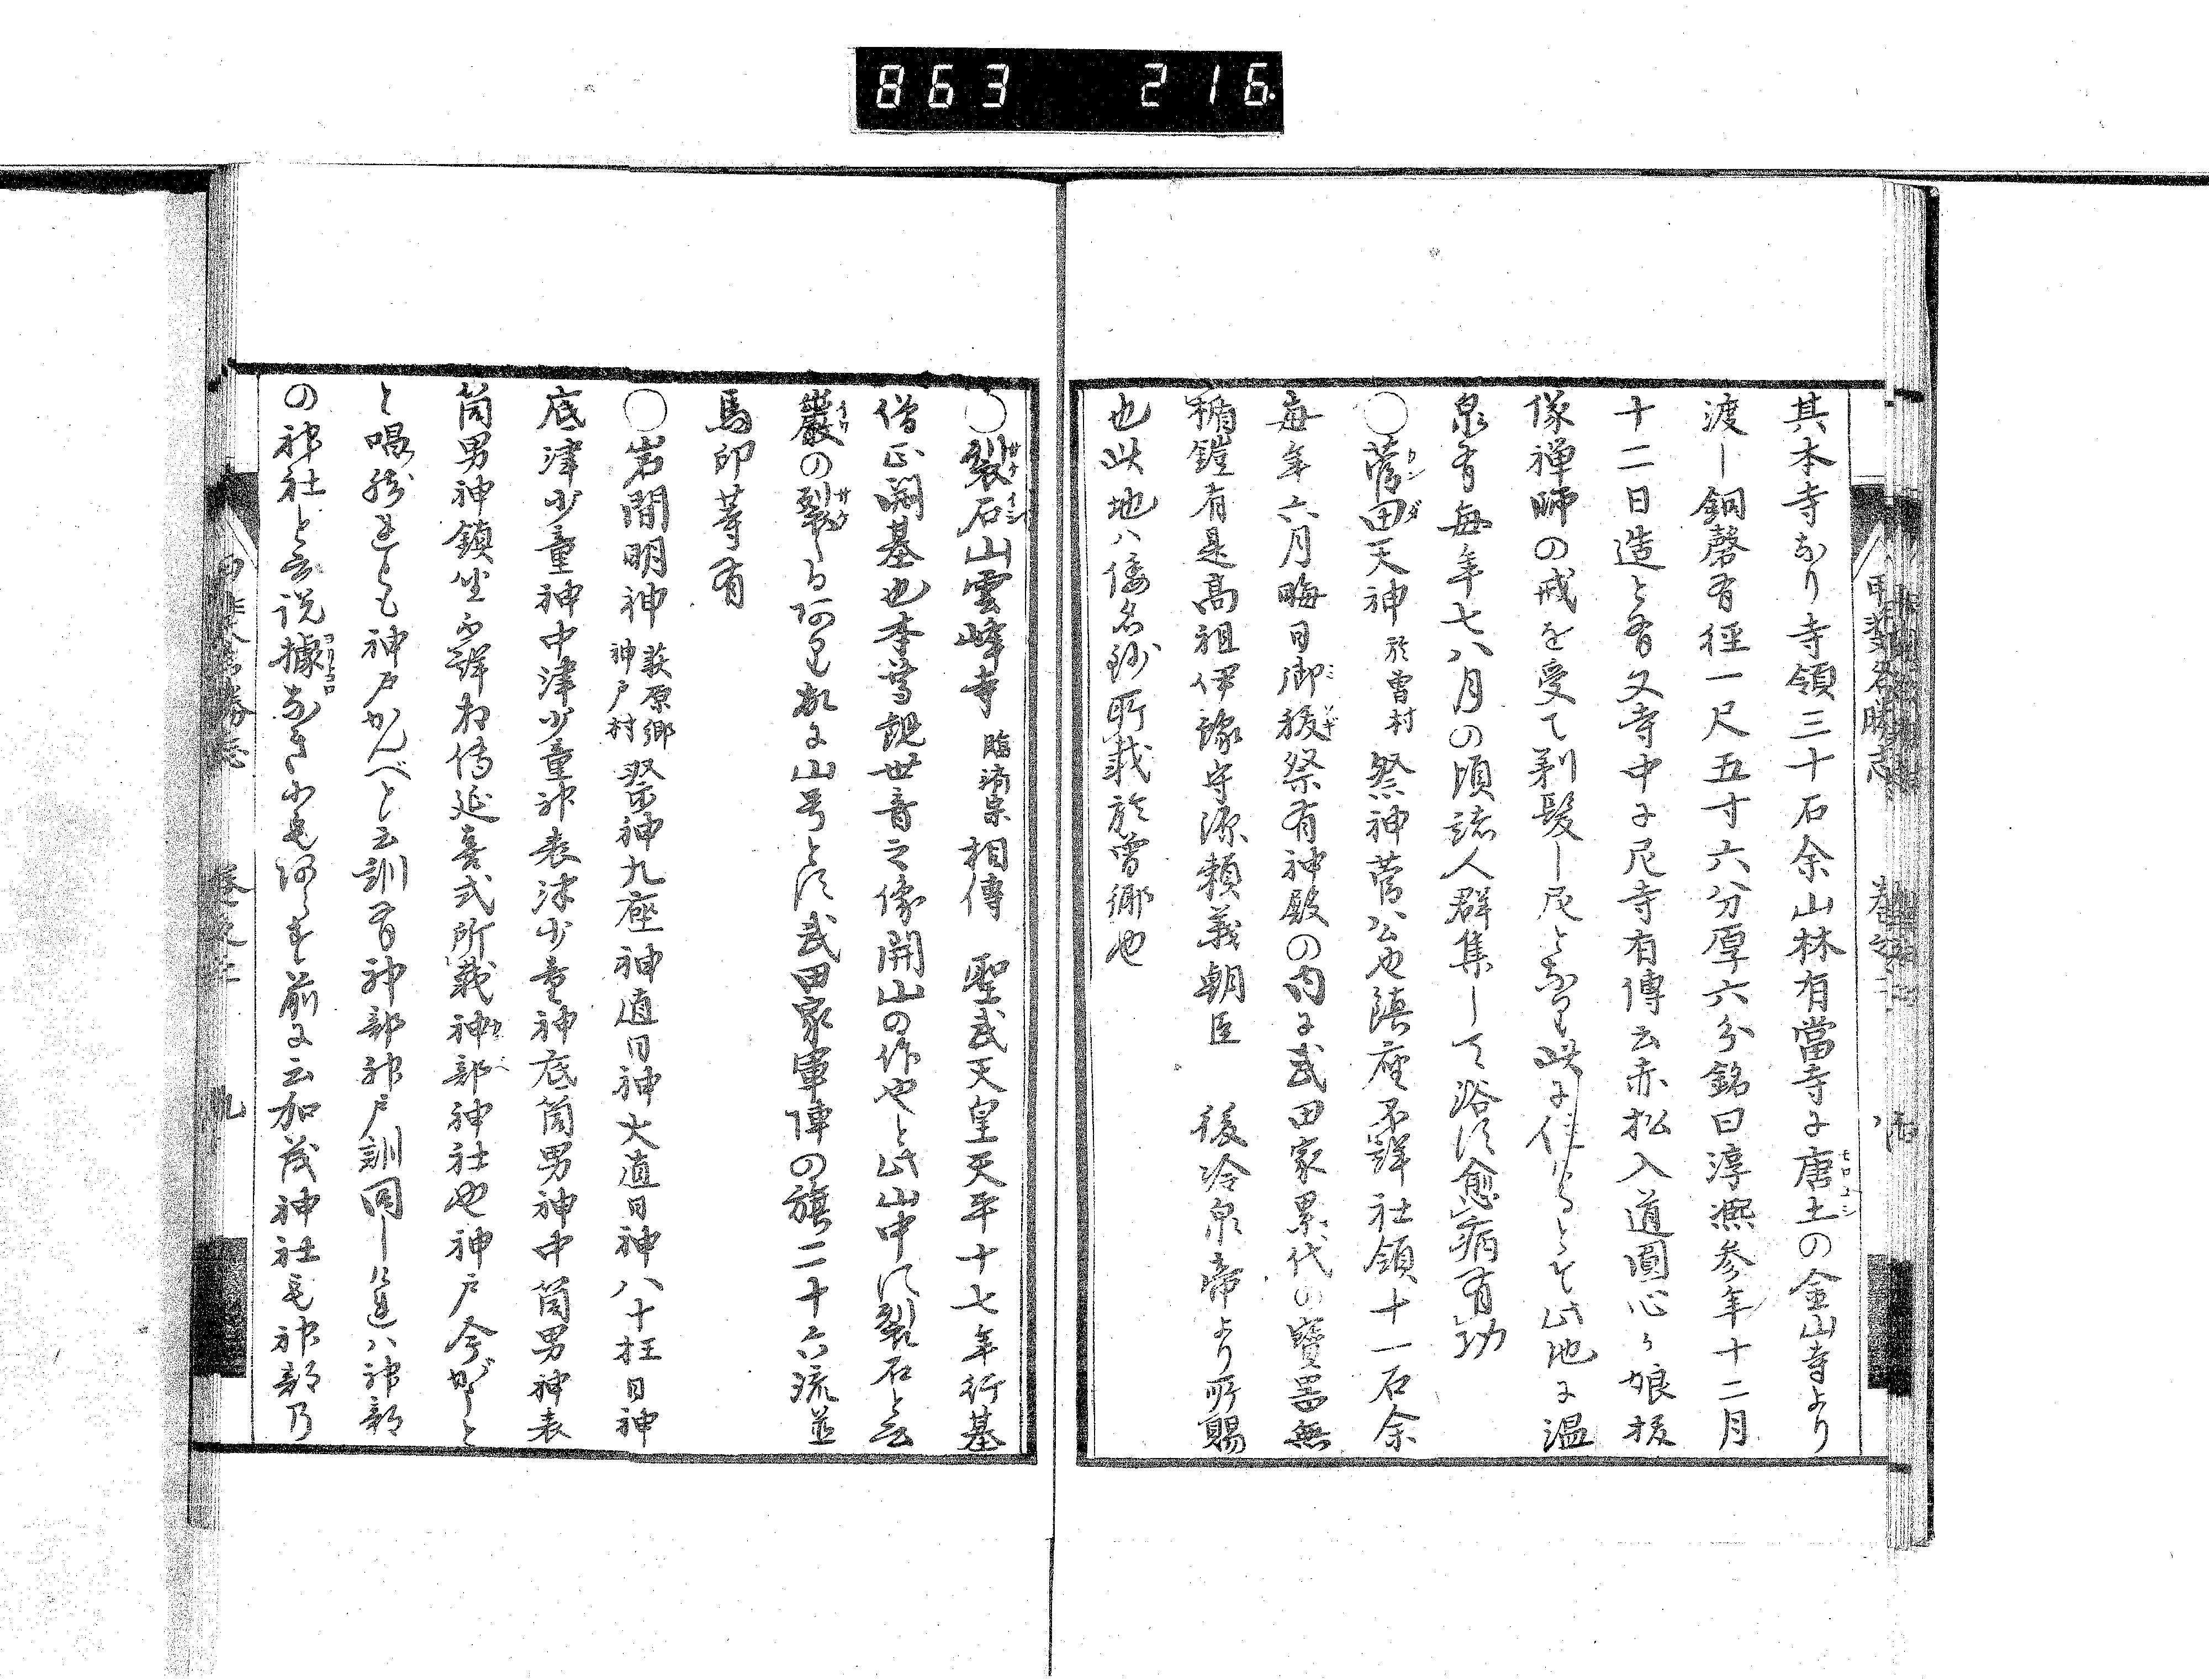 863 216
甲斐名勝志 巻之二
其本寺なり寺領三十石余山林有當寺に唐土の金山寺より
渡し銅磬有径一尺五寸六分厚六分銘曰淳熙参年十二月
十二日造と有又寺中に尼寺有傳云赤松入道圓心か娘拔
像禅師の戒を受て剃髪し尼となり此に住けるとそ此地に温
泉有毎年七八月の頃諸人群集して浴す愈病有功
○菅田天神 於曽村 祭神菅公也鎮座不詳社領十一石余
毎年六月晦日御祓祭有神殿の内に武田家累代の寶器無
楯鎧有是高祖伊豫守源頼義朝臣 後冷泉帝より所賜
也此地ハ倭名鈔所載於曽郷也
○裂石山雲峰寺 臨済宗 相傳 聖武天皇天平十七年行基
僧正開基也本尊観世音之像開山の作也と此山中に裂石と云
巌の裂たる阿り故に山号とす武田家軍陣の旗二十六流並
馬印等有
○岩間明神 萩原郷神戸村 祭神九座神直日神大直日神八十枉日神
底津少童神中津少童神表津少童神底筒男神中筒男神表
筒男神鎮坐不詳相傳延喜式所載神部神社也神戸今がうと
と唱ふれとも神戸かんべと云訓有神部神戸訓同しけれハ神部
の神社と云説據なきにも阿らす前に云加茂神社も神部乃
甲斐名勝志 巻之二 九